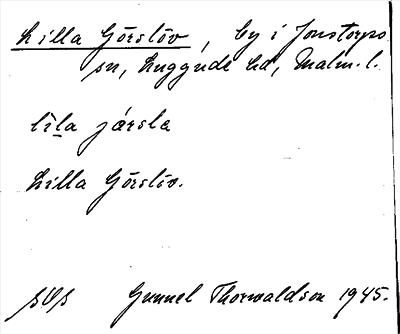 Lilla Görslöv, by i Jonstorps
sn, Luggude hd, Malm. l.
lila jársla
Lilla Görslöv.
Gunnel Thorwaldson 1945.